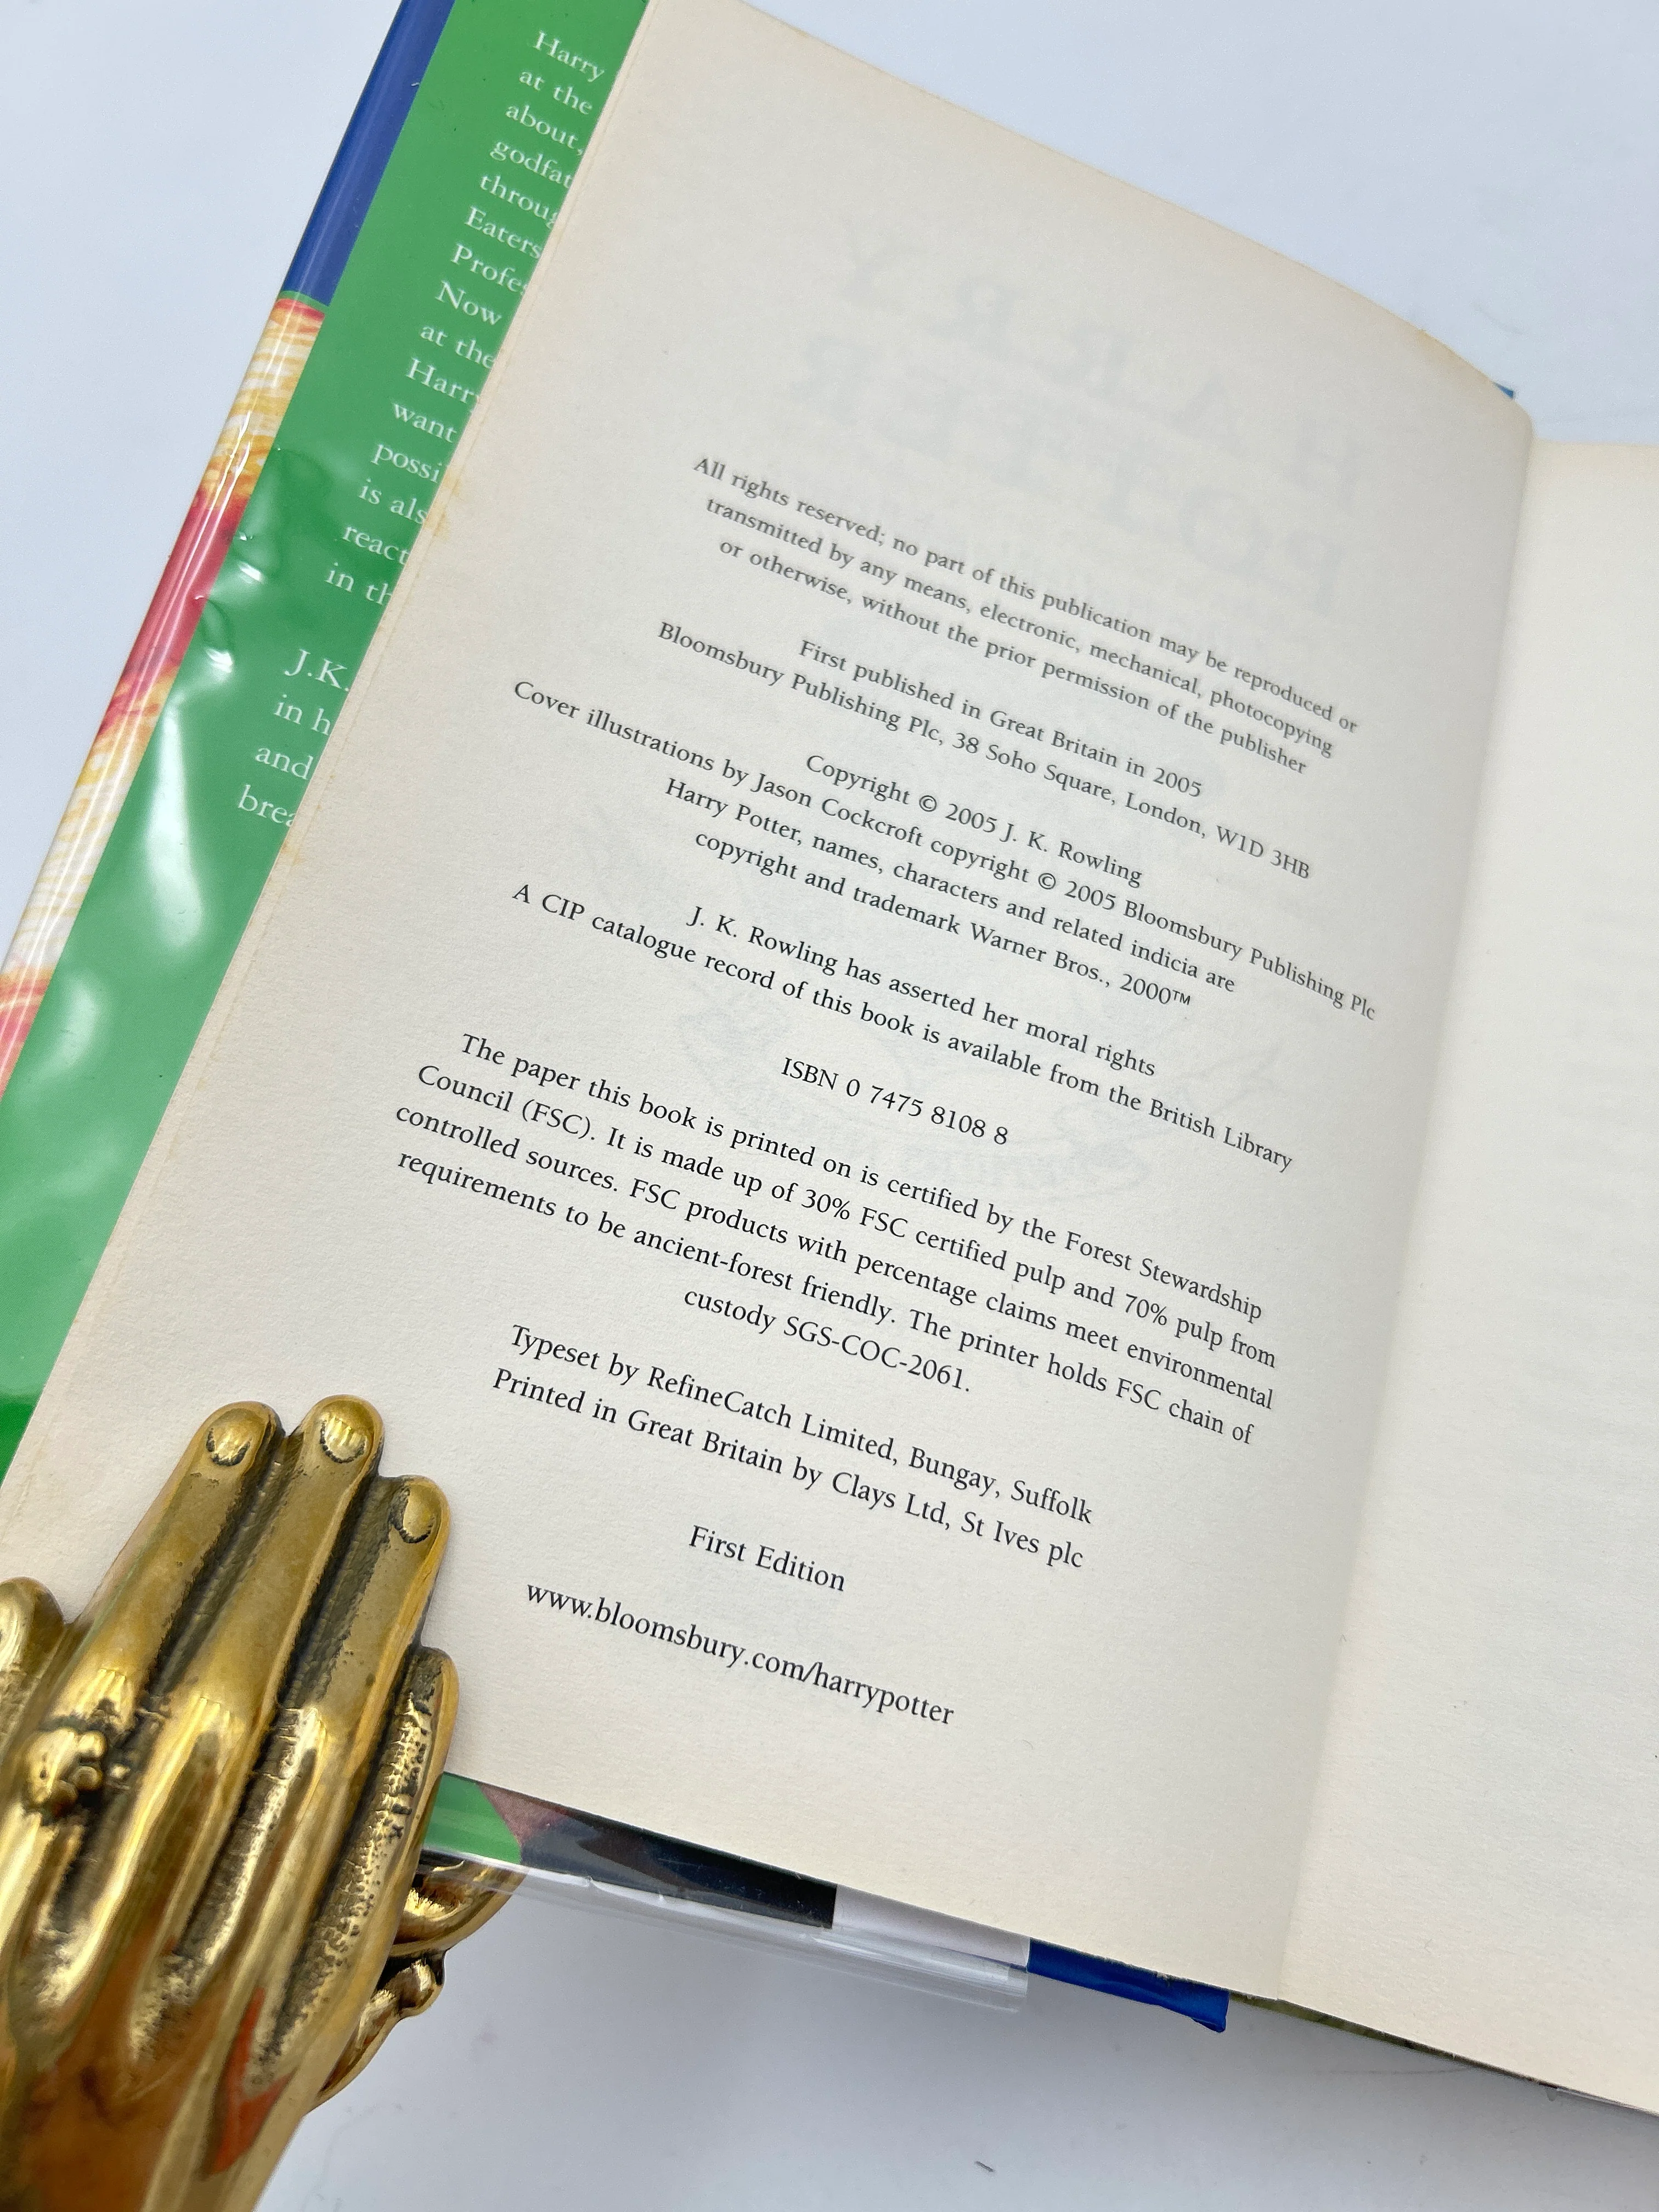 Harry
at the
about,
through
Eaters
Now
at the
Harry
want
in th
J.K.
in h
and
All rights reserved; no part of this publication may be reproduced or
transmitted by any means, electronic, mechanical, photocopying
or otherwise, without the prior permission of the publisher
First published in Great Britain in 2005
Bloomsbury Publishing Plc, 38 Soho Square, London, W1D 3HB
Copyright © 2005 J. K. Rowling
Cover illustrations by Jason Cockcroft copyright © 2005 Bloomsbury Publishing Plc
Harry Potter, names, characters and related indicia are
copyright and trademark Warner Bros., 2000™
J. K. Rowling has asserted her moral rights
A CIP catalogue record of this book is available from the British Library
ISBN 0 7475 8108 8
The paper this book is printed on is certified by the Forest Stewardship
Council (FSC). It is made up of 30% FSC certified pulp and 70% pulp from
controlled sources. FSC products with percentage claims meet environmental
requirements to be ancient-forest friendly. The printer holds FSC chain of
custody SGS-COC-2061.
Typeset by RefineCatch Limited, Bungay, Suffolk
Printed in Great Britain by Clays Ltd, St Ives plc
First Edition
www.bloomsbury.com/harrypotter